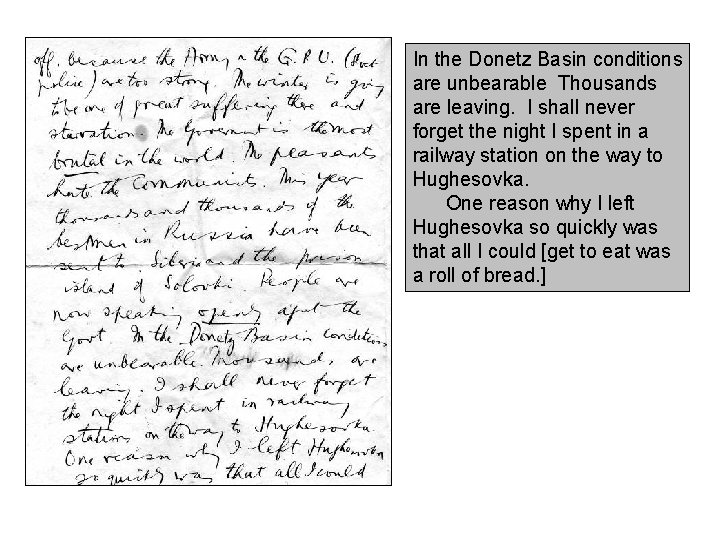 off, because the Army & the G.P.U. (Soviet
police) are too strong. The winter is going
to be one of great suffering there and
starvation. The Government is the most
brutal in the world. The peasants
hate the Communists. This year
thousands and thousands of the
best men in Russia have been
sent to Siberia and the prison
island of Solovki. People are
now speaking openly against the
Govt. In the Donetz Basin conditions
are unbearable. Thousands are
leaving. I shall never forget
the night I spent in railway
station on the way to Hughesovka.
One reason why I left Hughesovka
so quickly was that all I could
In the Donetz Basin conditions
are unbearable Thousands
are leaving. I shall never
forget the night I spent in a
railway station on the way to
Hughesovka.
One reason why I left
Hughesovka so quickly was
that all I could [get to eat was
a roll of bread. ]